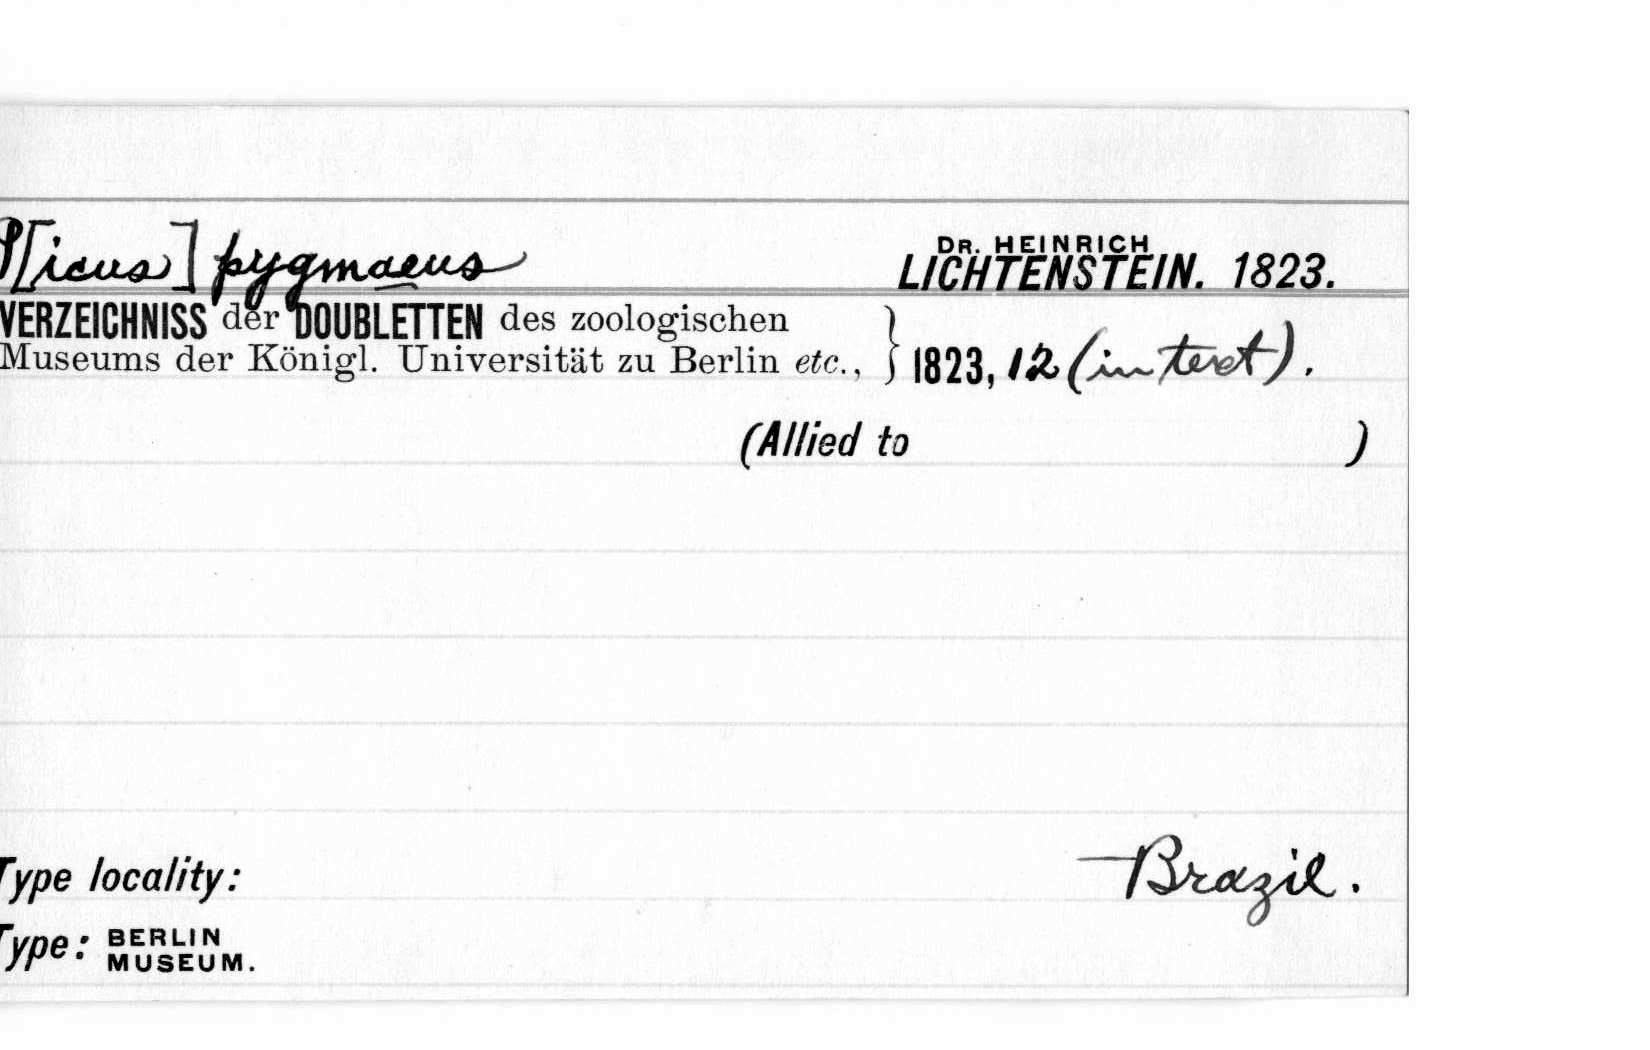 P[icus] pygmaeus
DR. HEINRICH
LICHTENSTEIN. 1823.
VERZEICHNISS der DOUBLETTEN des zoologischen
Museums der Königl. Universität zu Berlin etc., } 1823, 12 (in text).
(Allied to )
Type locality: Brazil.
Type: BERLIN
MUSEUM.